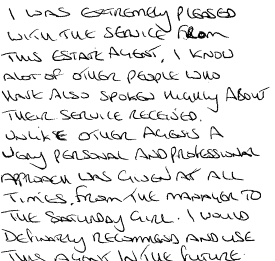 I WAS EXTREMELY PLEASED
WITH THE SERVICE FROM
THIS ESTATE AGENT, I KNOW
ALOT OF OTHER PEOPLE WHO
HAVE ALSO SPOKEN HIGHLY ABOUT
THEIR SERVICE RECEIVED.
UNLIKE OTHER AGENTS A
VERY PERSONAL AND PROFESSIONAL
APPROACH WAS GIVEN AT ALL
TIMES, FROM THE MANAGER TO
THE SATURDAY GIRL. I WOULD
DEFINATELY RECOMMEND AND USE
THIS AGENT IN THE FUTURE.